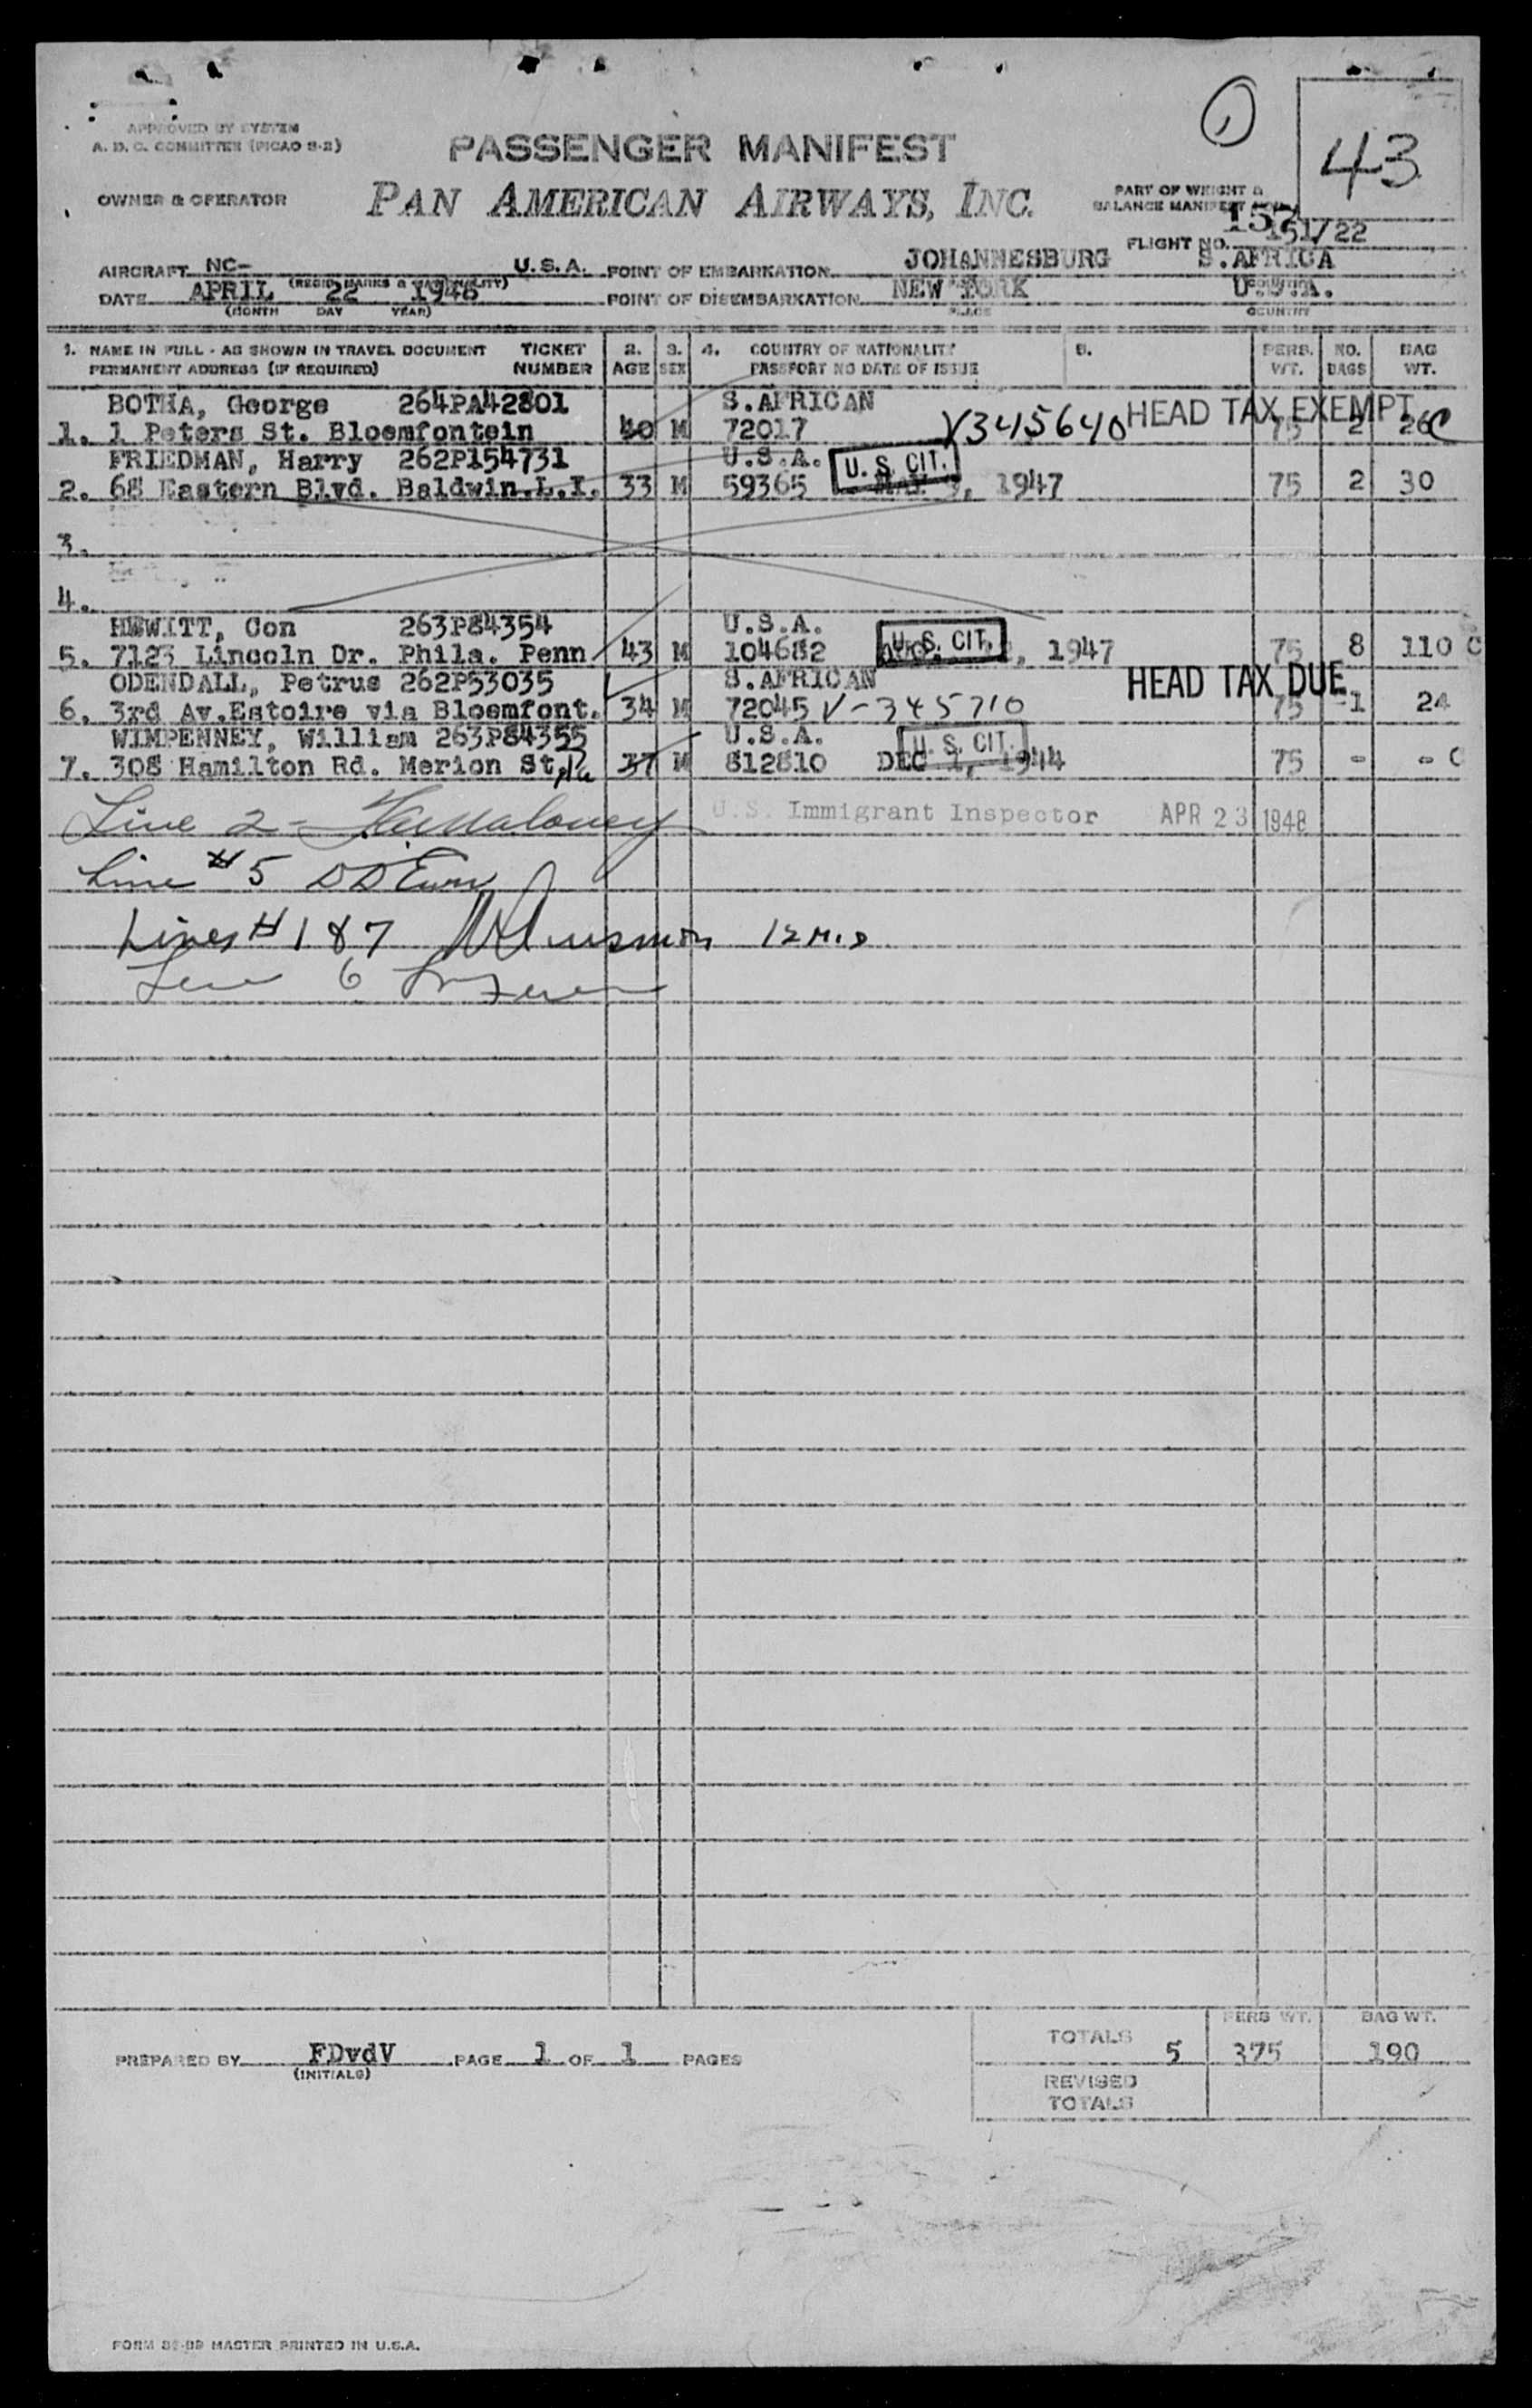 43
APPROVED BY SYSTEM
A. D. C. COMMITTEE (PICAO S-2)
PASSENGER MANIFEST
OWNER & OPERATOR PAN AMERICAN AIRWAYS, INC.
PART OF WEIGHT &
BALANCE MANIFEST
157
FLIGHT NO. 151/22
AIRCRAFT NC- U.S.A. POINT OF EMBARKATION JOHANNESBURG S.AFRICA
DATE APRIL 22 1948 POINT OF DISEMBARKATION NEW YORK U.S.A.
(MONTH DAY YEAR) PLACE COUNTRY
1. NAME IN FULL - AS SHOWN IN TRAVEL DOCUMENT TICKET 2. 3. 4. COUNTRY OF NATIONALITY 5. PERS. NO. BAG
PERMANENT ADDRESS (IF REQUIRED) NUMBER AGE SEX PASSPORT NO DATE OF ISSUE WT. BAGS WT.
BOTHA, George 264PA42801 S.AFRICAN HEAD TAX EXEMPT
1. 1 Peters St. Bloemfontein 40 M 72017 V345640 75 2 26 C
FRIEDMAN, Harry 262P154731 U.S.A. U. S. CIT.
2. 68 Eastern Blvd. Baldwin.L.I. 33 M 59365 1947 75 2 30
3.
4.
HEWITT, Con 263P84354 U.S.A. U. S. CIT.
5. 7123 Lincoln Dr. Phila. Penn 43 M 104682 , 1947 75 8 110 C
ODENDALL, Petrus 262P53035 S.AFRICAN HEAD TAX DUE
6. 3rd Av.Estoire via Bloemfont. 34 M 72045 V-345710 75 1 24
WIMPENNEY, William 263P84355 U.S.A. U. S. CIT.
7. 308 Hamilton Rd. Merion St. Pa 37 M 812810 DEC 1, 1944 75 - - C
Line 2 - Maloney U.S. Immigrant Inspector APR 23 1948
Line #5
Lines # 1 & 7
Line 6
TOTALS 5 PERS WT. 375 BAG WT. 190
PREPARED BY FDvdV PAGE 1 OF 1 PAGES
(INITIALS)
REVISED
TOTALS
MASTER PRINTED IN U.S.A.